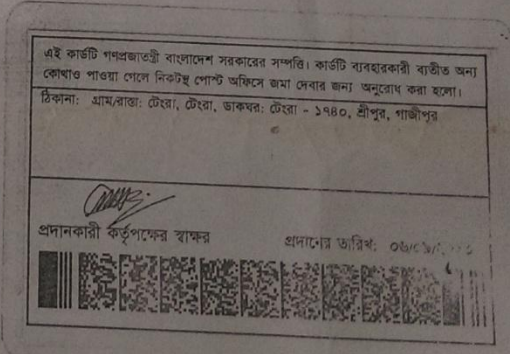 এই কার্ডটি গণপ্রজাতন্ত্রী বাংলাদেশ সরকারের সম্পত্তি। কার্ডটি ব্যবহারকারী ব্যতীত অন্য
কোথাও পাওয়া গেলে নিকটস্থ পোস্ট অফিসে জমা দেবার জন্য অনুরোধ করা হলো।
ঠিকানা: গ্রাম/রাস্তা: টেংরা, টেংরা, ডাকঘর: টেংরা - ১৭৪০, শ্রীপুর, গাজীপুর
প্রদানকারী কর্তৃপক্ষের স্বাক্ষর
প্রদানের তারিখ: